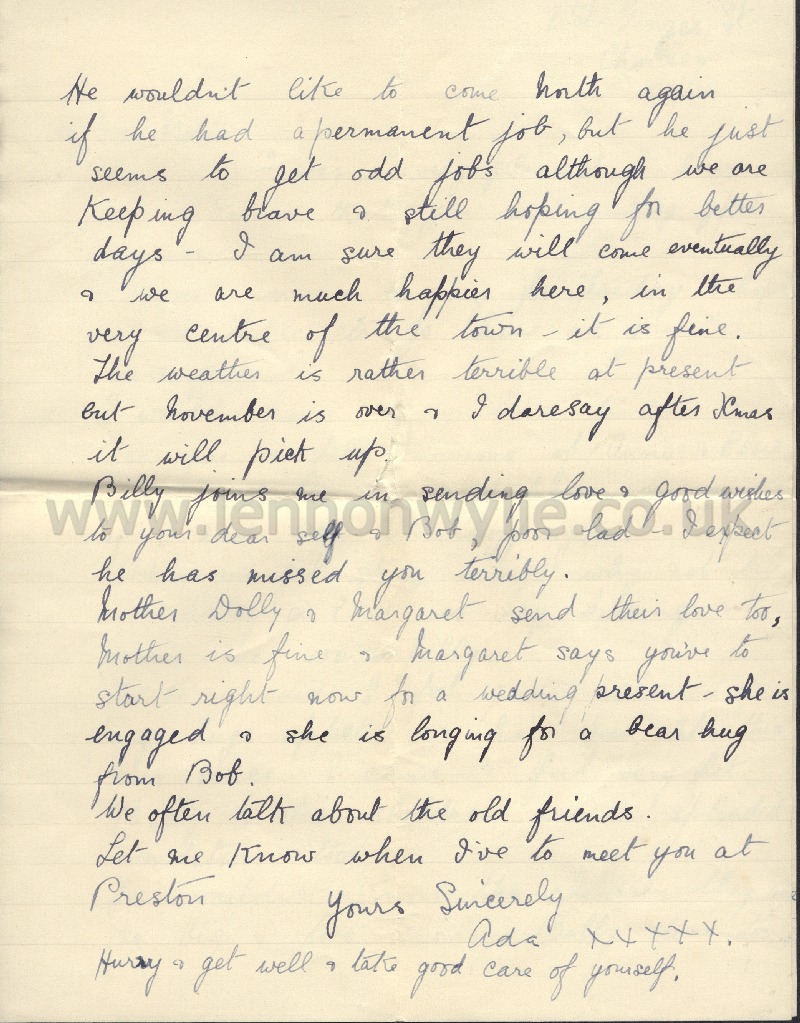 He wouldn't like to come North again
if he had a permanent job, but he just
seems to get odd jobs although we are
Keeping brave & still hoping for better
days - I am sure they will come eventually
& we are much happier here, in the
very centre of the town - it is fine.
The weather is rather terrible at present
but November is over & I daresay after Xmas
it will pick up.
Billy joins me in sending love & good wishes
www.lennonwylie.co.uk
to your dear self & Bob, poor lad - I expect
he has missed you terribly.
Mother Dolly & Margaret send their love too,
Mother is fine & Margaret says you've to
start right now for a wedding present - she is
engaged & she is longing for a bear hug
from Bob.
We often talk about the old friends.
Let me Know when I've to meet you at
Preston Yours Sincerely
Ada XXXXX.
Hurry & get well & take good care of yourself.